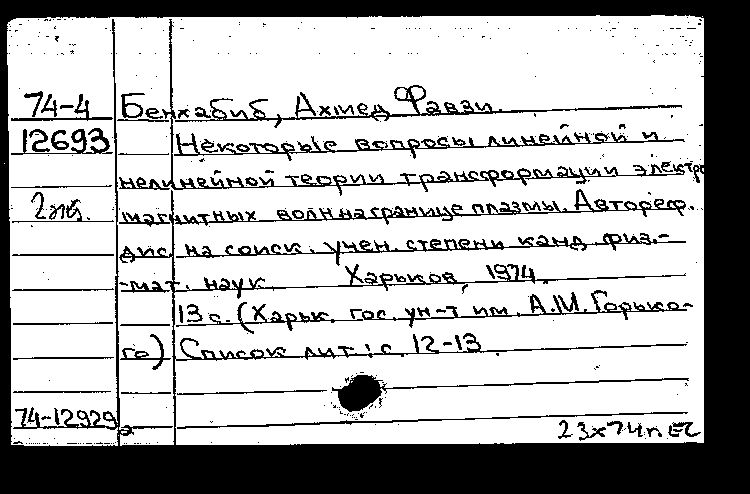 74-4 Бенхабиб, Ахмед Фавзи.
12693 Некоторые вопросы линейной и
нелинейной теории трансформации электро
2 экз. магнитных волн на границе плазмы. Автореф.
дис. на соиск. учен. степени канд. физ.-
-мат. наук. Харьков, 1974.
13 с. (Харьк. гос. ун-т им. А.М. Горько-
го) Список лит: с. 12-13.
74-12929
23х74п